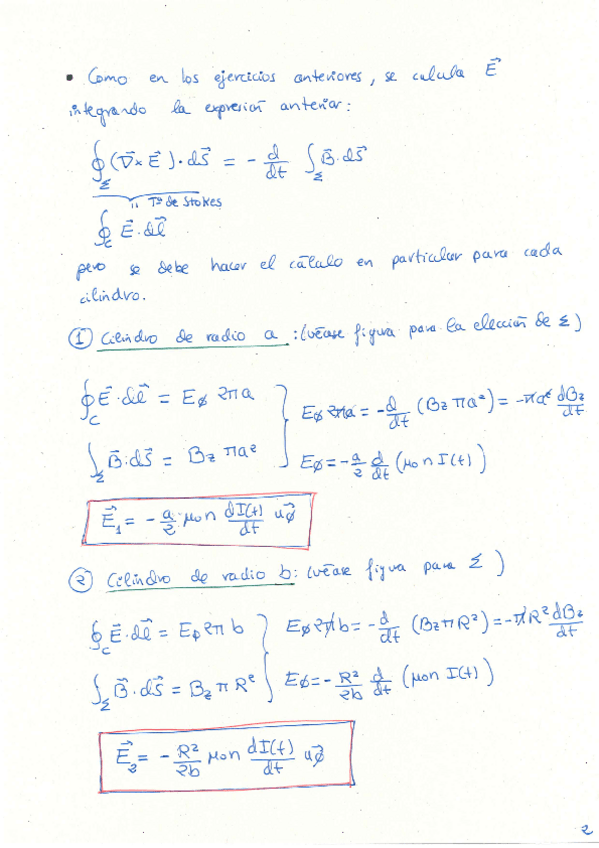 • Como en los ejercicios anteriores, se calcula E⃗
integrando la expresión anterior:
∮_Σ (∇⃗×E⃗)·dS⃗ = - d/dt ∫_Σ B⃗·dS⃗
" Tª de Stokes
∮_C E⃗·dl⃗
pero se debe hacer el cálculo en particular para cada
cilindro.
① Cilindro de radio a : (véase figura para la elección de Σ)
∮_C E⃗·dl⃗ = EØ 2πa
EØ 2πa = - d/dt (Bz πa²) = -πa² dBz/dt
∫_Σ B⃗·dS⃗ = Bz πa²
EØ = - a/2 d/dt (μo n I(t))
E⃗₁ = - a/2 μo n dI(t)/dt u⃗ø
② Cilindro de radio b: (véase figura para Σ)
∮_C E⃗·dl⃗ = EØ 2πb
EØ 2πb = - d/dt (Bz πR²) = -πR² dBz/dt
∫_Σ B⃗·dS⃗ = Bz πR²
EØ = - R²/2b d/dt (μo n I(t))
E⃗₂ = - R²/2b μo n dI(t)/dt u⃗ø
2